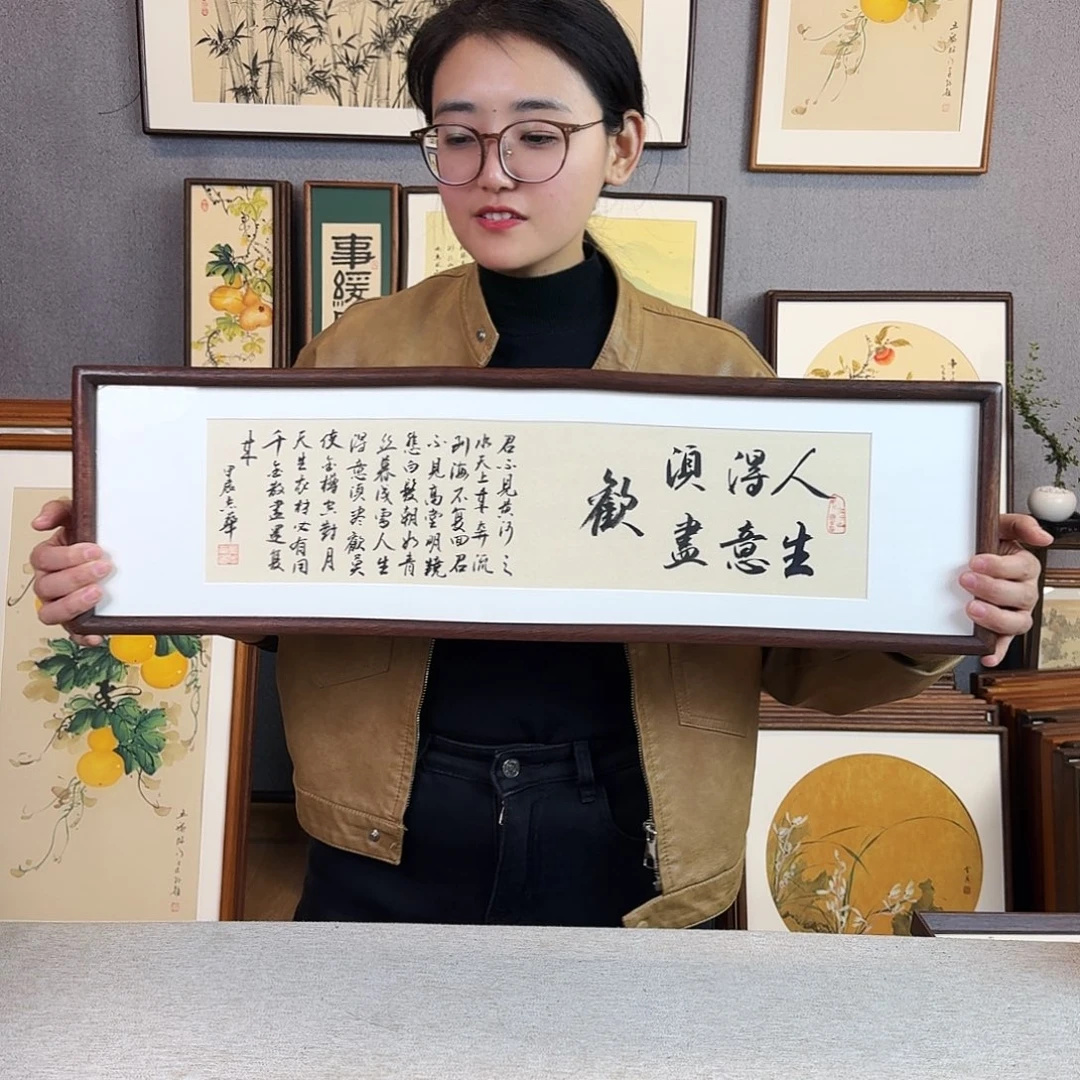 人生
得意
須盡
歡
君不見黄河之
水天上來奔流
到海不复回君
不見高堂明鏡
悲白髮朝如青
丝暮成雪人生
得意須尽歡莫
使金樽空對月
天生我材必有用
千金散盡還复
來
甲辰
事緩